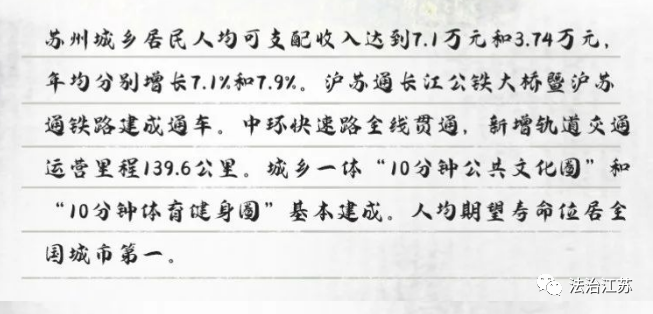 苏州城乡居民人均可支配收入达到7.1万元和3.74万元，
年均分别增长7.1%和7.9%。沪苏通长江公铁大桥暨沪苏
通铁路建成通车。中环快速路全线贯通，新增轨道交通
运营里程139.6公里。城乡一体“10分钟公共文化圈”和
“10分钟体育健身圈”基本建成。人均期望寿命位居全
国城市第一。
法治江苏